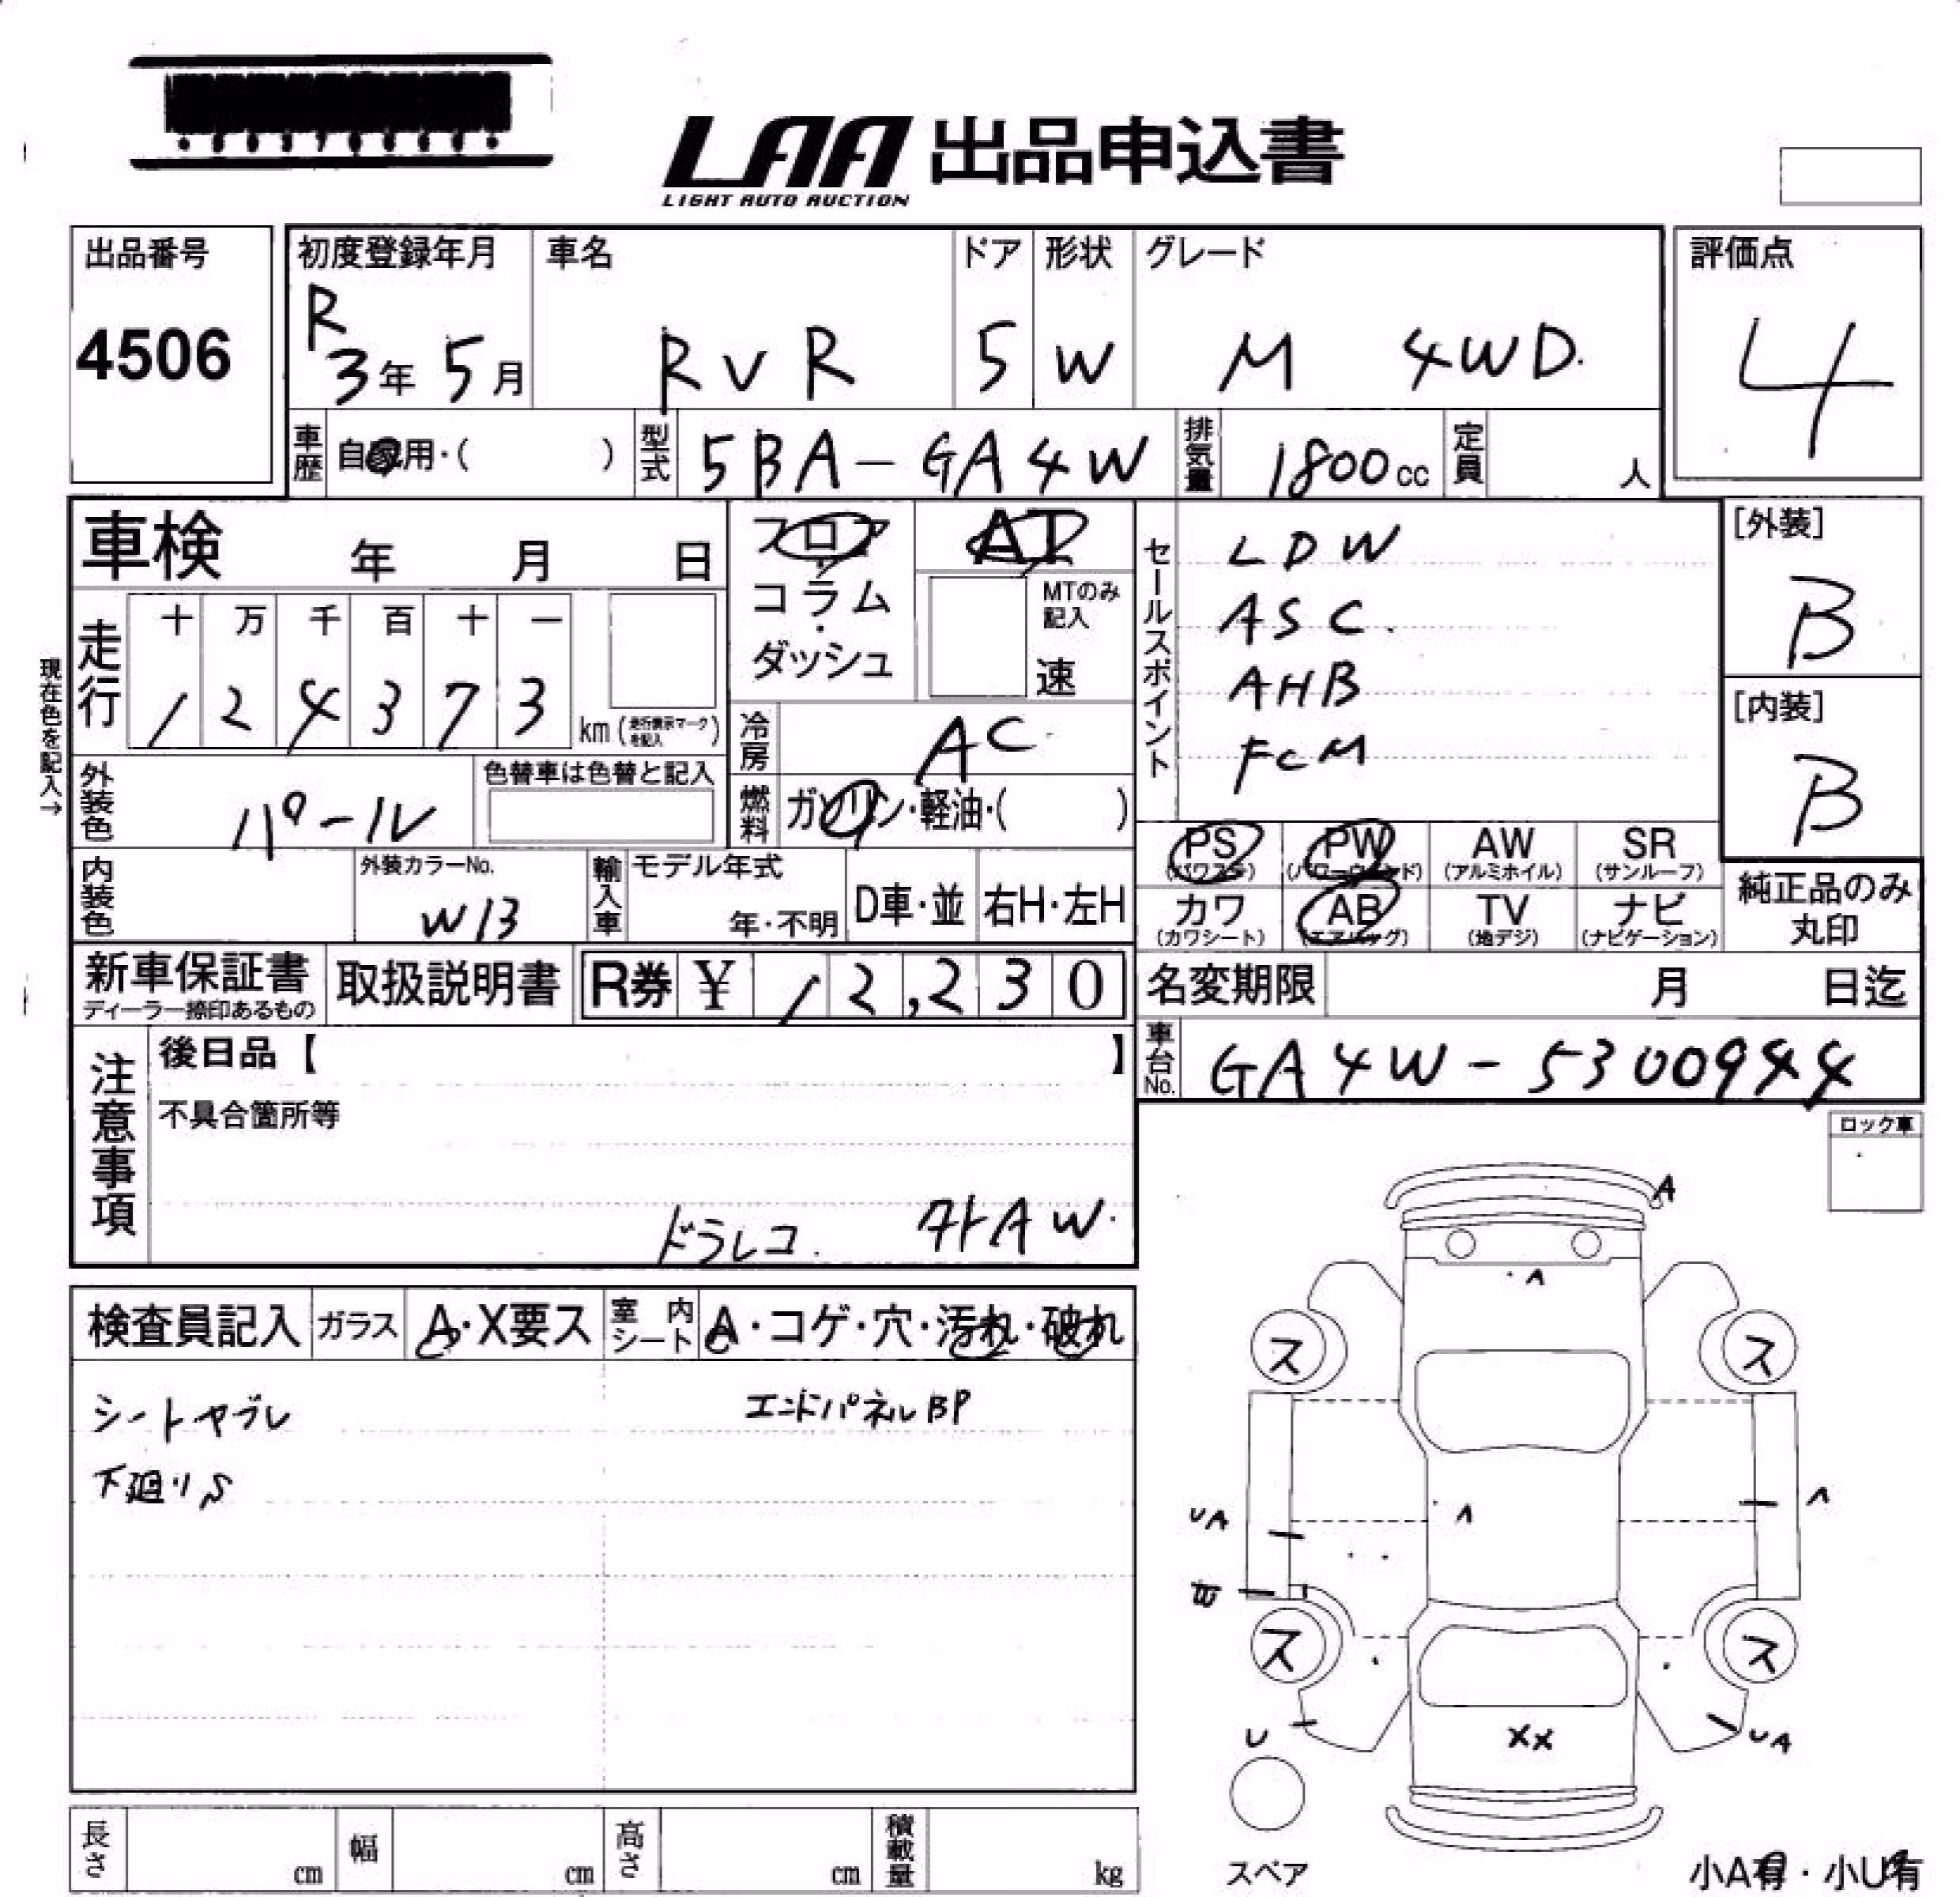 LAA 出品申込書
LIGHT AUTO AUCTION
出品番号
4506
初度登録年月
R
3年 5月
車名
RVR
ドア
5
形状
W
グレード
M 4WD.
評価点
4
車歴 自家用・( )
型式 5BA-GA4W
排気量 1800cc
定員 人
車検 年 月 日
現在色を記入→
走行
十 万 千 百 十 一
1 2 4 3 7 3
km (走行表示マークを記入)
外装色 パール
色替車は色替と記入
内装色
外装カラーNo.
W13
フロア
・
コラム
・
ダッシュ
AT
MTのみ記入
速
冷房 AC
燃料 ガソリン・軽油・( )
輸入車
モデル年式
年・不明
D車・並
右H・左H
セールスポイント
LDW
ASC.
AHB
FCM
[外装]
B
[内装]
B
PS (パワステ)
PW (パワーウィンド)
AW (アルミホイル)
SR (サンルーフ)
カワ (カワシート)
AB (エアバッグ)
TV (地デジ)
ナビ (ナビゲーション)
純正品のみ
丸印
新車保証書
ディーラー捺印あるもの
取扱説明書
R券 ¥ 12,230
名変期限 月 日迄
車台No. GA4W-5300944
注意事項
後日品【 】
不具合箇所等
ドラレコ. 外AW.
ロック車
検査員記入
ガラス A・X要ス
室内シート A・コゲ・穴・汚れ・破れ
シートヤブレ
エンドパネルBP
下廻りS
A
A
ス ス
A
UA
A
B
ス ス
U
XX
UA
スペア
小A有・小U有
長さ cm
幅 cm
高さ cm
積載量 kg